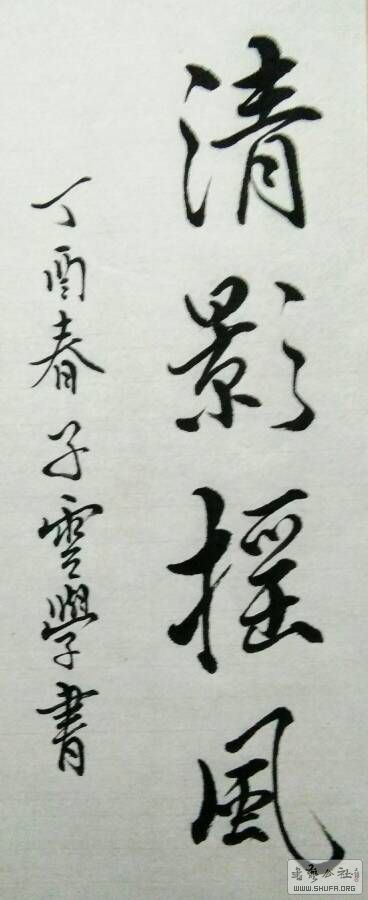 清影摇風
丁酉春子雲學書
WWW.SHUFA.ORG